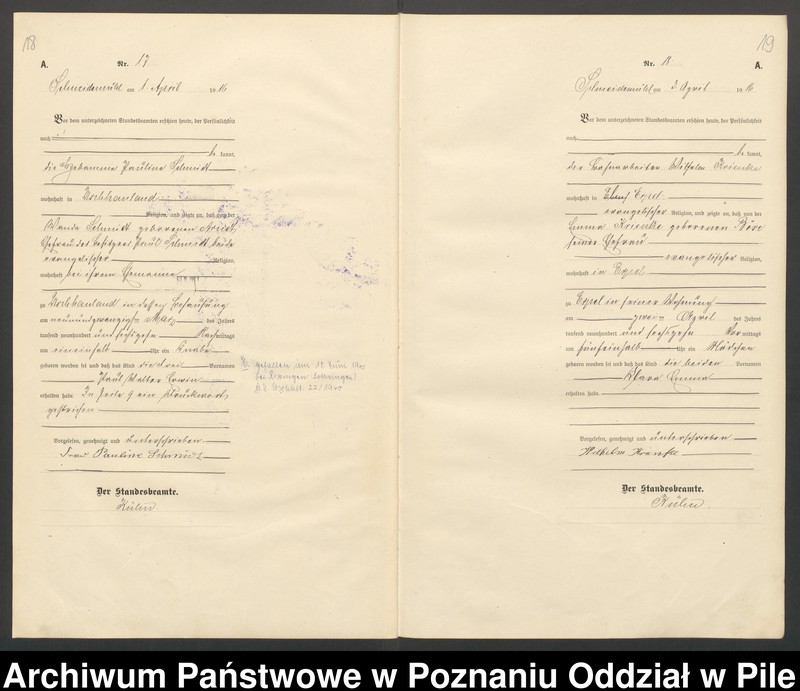 18
A.
Nr. 17
Schneidemühl am 1. April 1916
Vor dem unterzeichneten Standesbeamten erschien heute, der Persönlichkeit
nach
be kannt,
die Hebamme Pauline Schmidt
wohnhaft in
Religion, und zeigte an, daß von der
Wanda Schmidt geborenen
Ehefrau des Besitzers Paul Schmidt beide
evangelischer Religion,
wohnhaft bei ihrem Ehemanne
zu in dessen Behausung
am neunundzwanzigsten März des Jahres
tausend neunhundert und sechszehn Nachmittags
um eineinhalb Uhr ein Knabe
geboren worden sei und daß das Kind die drei Vornamen
Paul Walter Erwin
erhalten habe. In Zeile 9 ein Druckwort
gestrichen.
Vorgelesen, genehmigt und unterschrieben
Frau Pauline Schmidt
Der Standesbeamte.
gefallen am 17. Juni 1940
bei
19
A.
Nr. 18
Schneidemühl am 3. April 1916
Vor dem unterzeichneten Standesbeamten erschien heute, der Persönlichkeit
nach
be kannt,
der Wilhelm
wohnhaft in Expel
evangelischer Religion, und zeigte an, daß von der
Emma geborenen
seiner Ehefrau
evangelischer Religion,
wohnhaft in Expel
zu Expel in seiner Wohnung
am zwei April des Jahres
tausend neunhundert und sechszehn Vormittags
um fünfeinhalb Uhr ein Mädchen
geboren worden sei und daß das Kind die beiden Vornamen
Klara Emma
erhalten habe.
Vorgelesen, genehmigt und unterschrieben
Wilhelm
Der Standesbeamte.
Archiwum Państwowe w Poznaniu Oddział w Pile